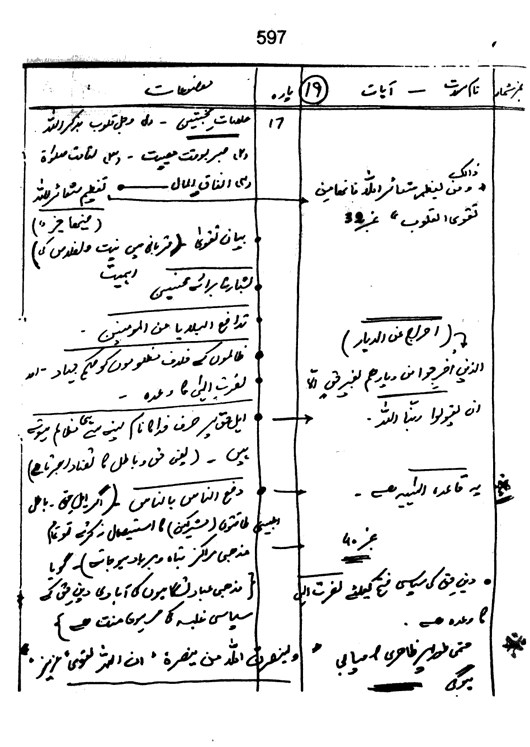 597
نمبر شمار
نام سورت - آیات
19
پارہ
موضوعات
17
علامات مخبتین - (1) وجل قلوب بذکر اللہ
(2) صبر بوقت مصیبت - (3) اقامت صلوٰۃ
(4) انفاق المال
تعظیم شعائر اللہ
بیان تقویٰ (قربانی میں نیت و اخلاص کی
اہمیت
بشارت برائے محسنین
تدافع البلایا عن المومنین -
ظالموں کے خلاف مظلوموں کو حکم جہاد - اور
نصرت الٰہی کا وعدہ -
اہل حق پر صرف خدا کا نام لینے سے ہی مظالم ہوتے
ہیں - (یعنی حق و باطل کا تضاد اجرتا ہے)
دفع الناس بالناس - (اگر اہل حق - باطل
ابلیسی طاقتوں (مشرکین) کا استیصال نہ کرتے تو تمام
مذہبی مراکز تباہ و برباد ہو جاتے) - گویا
{ مذہبی عبادتگاہوں کی آبادی دین حق کے
سیاسی غلبہ کا مرہون منت ہے }
ولینصرن اللہ من ینصرہ ، ان اللہ لقوی عزیز
ذالک
ومن یعظم شعائر اللہ فانھا من
تقوی القلوب نمبر 32
(اخراج عن الدیار)
الذین اخرجوا من دیارھم بغیر حق الا
ان یقولوا ربنا اللہ -
یہ قاعدہ الٰہیہ ہے -
نمبر 40
دین حق کی سیاسی فتح کیلئے نصرت الٰہی
کا وعدہ ہے -
حتمی طور پر ظاہری کامیابی
ہوگی